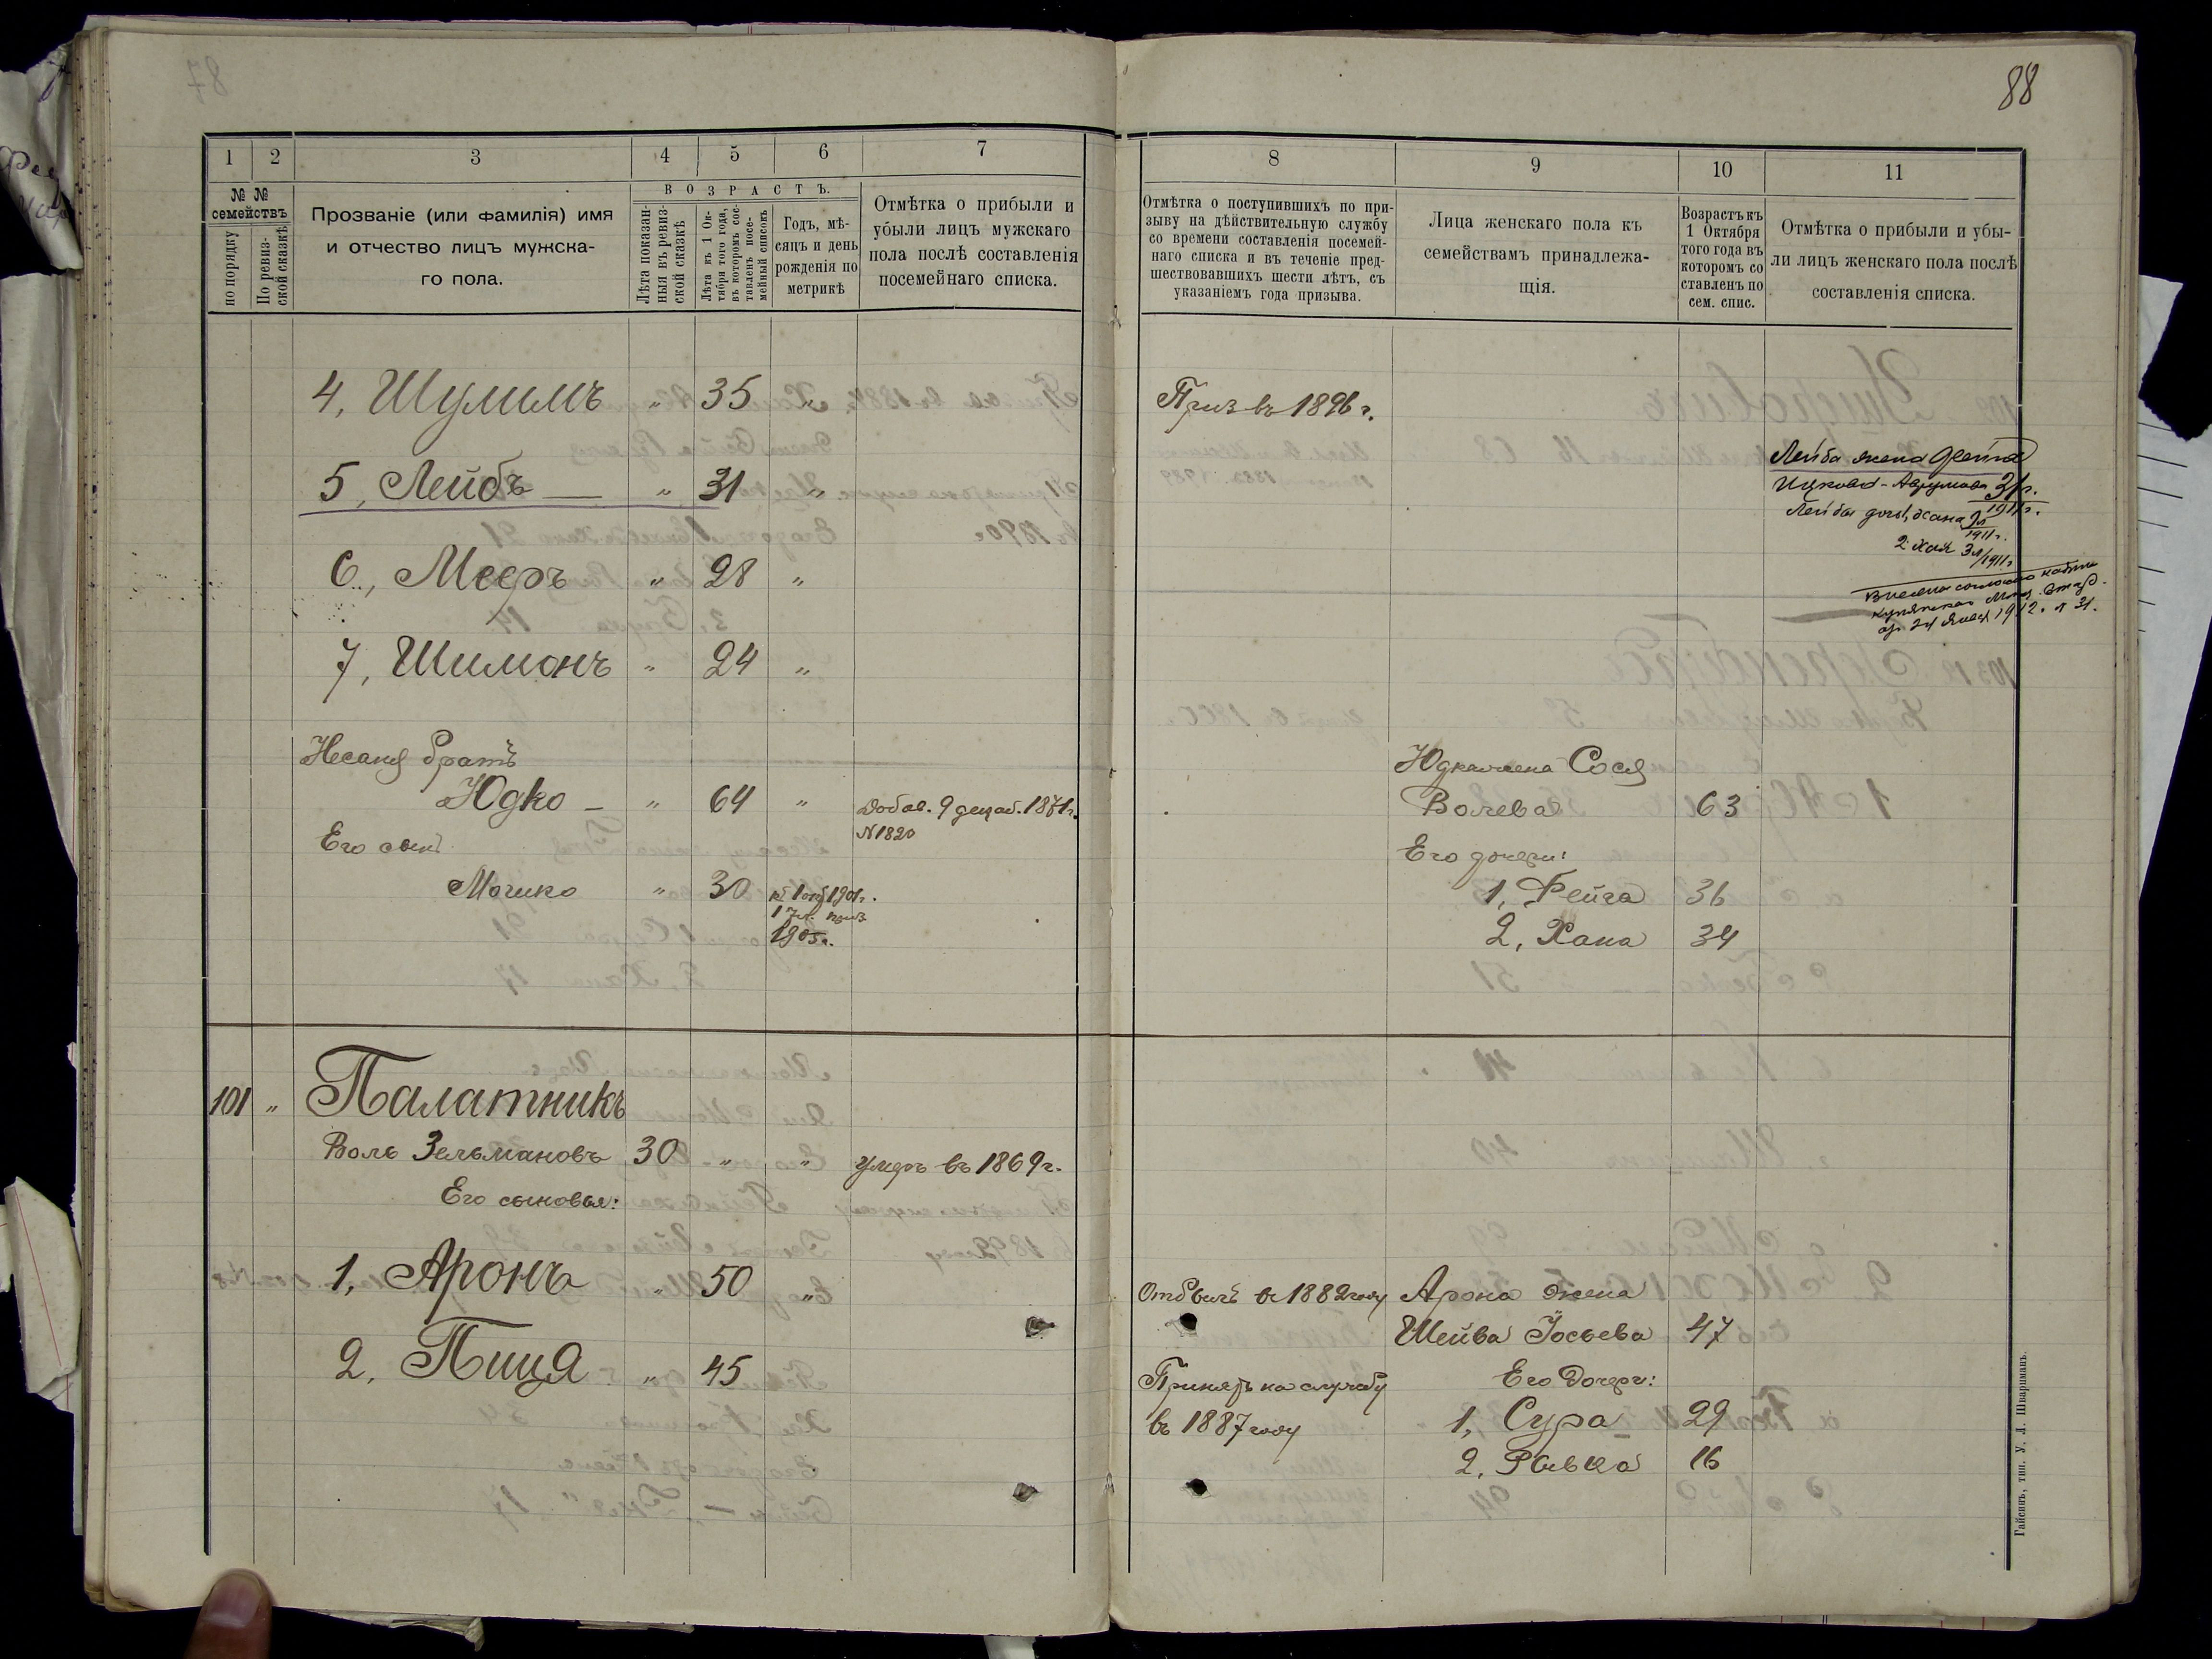 88
1
2
3
4
5
6
7
№ №
семействъ
по порядку
По ревиз-
ской сказкѣ
Прозваніе (или фамилія) имя
и отчество лицъ мужска-
го пола.
ВОЗРАСТЪ.
Лѣта показан-
ныя въ ревиз-
ской сказкѣ
Лѣта къ 1 Ок-
тября того года,
въ которомъ сос-
тавленъ посе-
мейный списокъ
Годъ, мѣ-
сяцъ и день
рожденія по
метрикѣ
Отмѣтка о прибыли и
убыли лицъ мужскаго
пола послѣ составленія
посемейнаго списка.
4, Шулимъ " 35 "
5, Лейбъ — " 31 "
6, Мееръ " 28 "
7, Шимонъ " 24 "
братъ
Юдко — " 64 " Добав. 9 декаб. 1871г.
N 1820
Его сынъ
Мошко " 30 къ 1 окт 1901г.
17 л. приз
1905г.
101 " Палатникъ
Воль Зельмановъ 30 " " Умеръ въ 1869г.
Его сыновья:
1, Аронъ " 50 "
2, Пиця " 45
8
9
10
11
Отмѣтка о поступившихъ по при-
зыву на дѣйствительную службу
со времени составленія посемей-
наго списка и въ теченіе пред-
шествовавшихъ шести лѣтъ, съ
указаніемъ года призыва.
Лица женскаго пола къ
семействамъ принадлежа-
щія.
Возрастъ къ
1 Октября
того года въ
которомъ со
ставленъ по
сем. спис.
Отмѣтка о прибыли и убы-
ли лицъ женскаго пола послѣ
составленія списка.
Приз въ 1896 г.
Лейба жена
Ицкова-Аврумова 31г.
1911г.
Лейба доч.
1911г.
2 Хая 3л/1911г
Внесена согласно
1912. 31.
Юдка жена Сося
Волева 63
Его дочери:
1, Фейга 36
2, Хана 34
Отбылъ въ 1882 году Арона жена
Шейва Іосьева 47
Принятъ на службу Его Дочери:
въ 1887 году 1, Сура 29
2, Ривка 16
Гайсинъ, тип. У. Л. Шварцманъ.